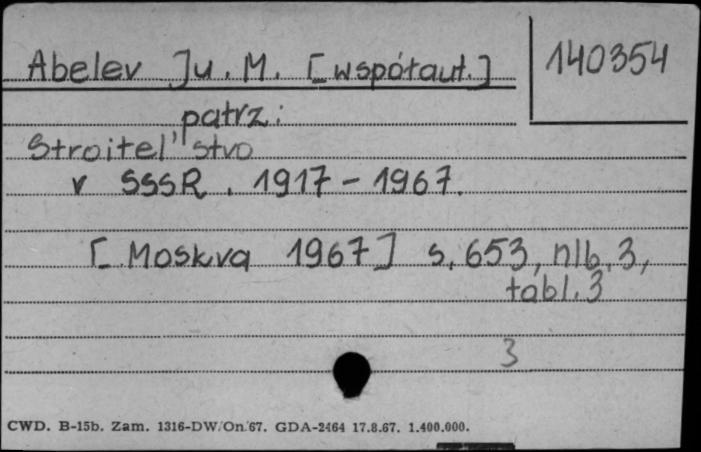 Abelev Ju. M. [współaut.]
140354
patrz:
Stroitel'stvo
v SSSR. 1917-1967.
[Moskva 1967] s. 653, nlb. 3,
tabl. 3
3
CWD. B-15b. Zam. 1316-DW/On/67. GDA-2464 17.8.67. 1.400.000.